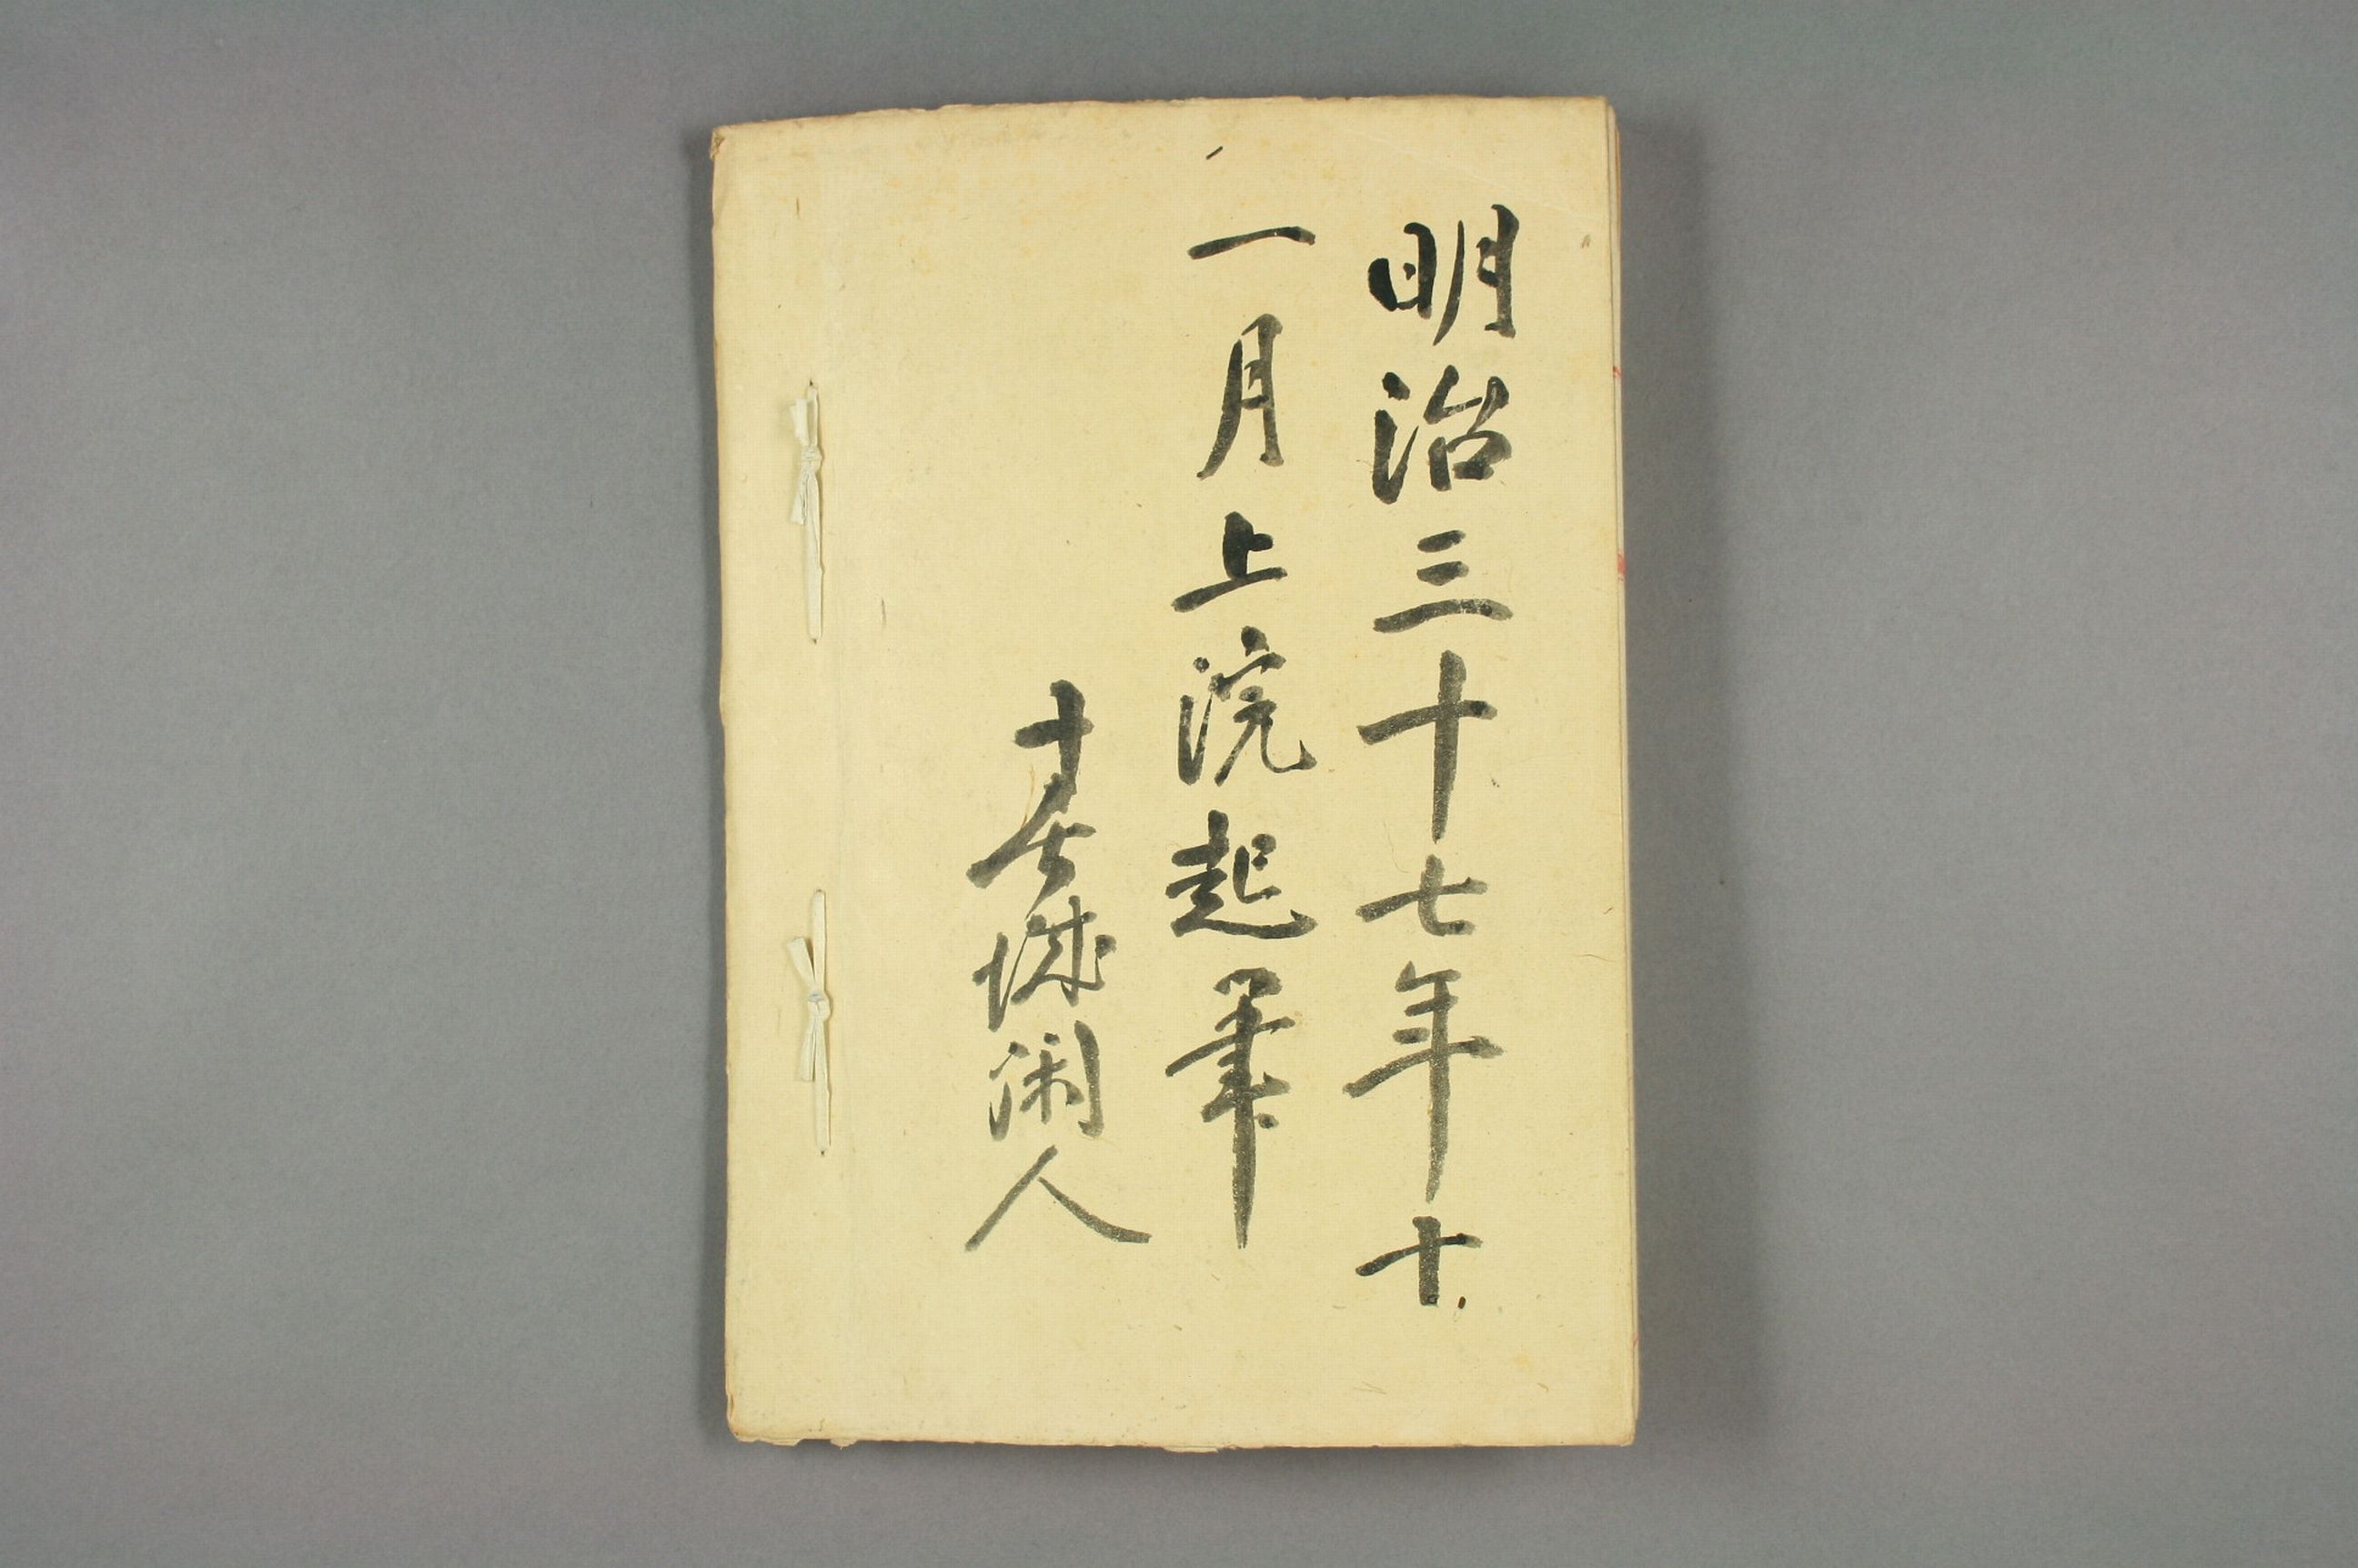 明治三十七年十
一月上浣起筆
春城閑人